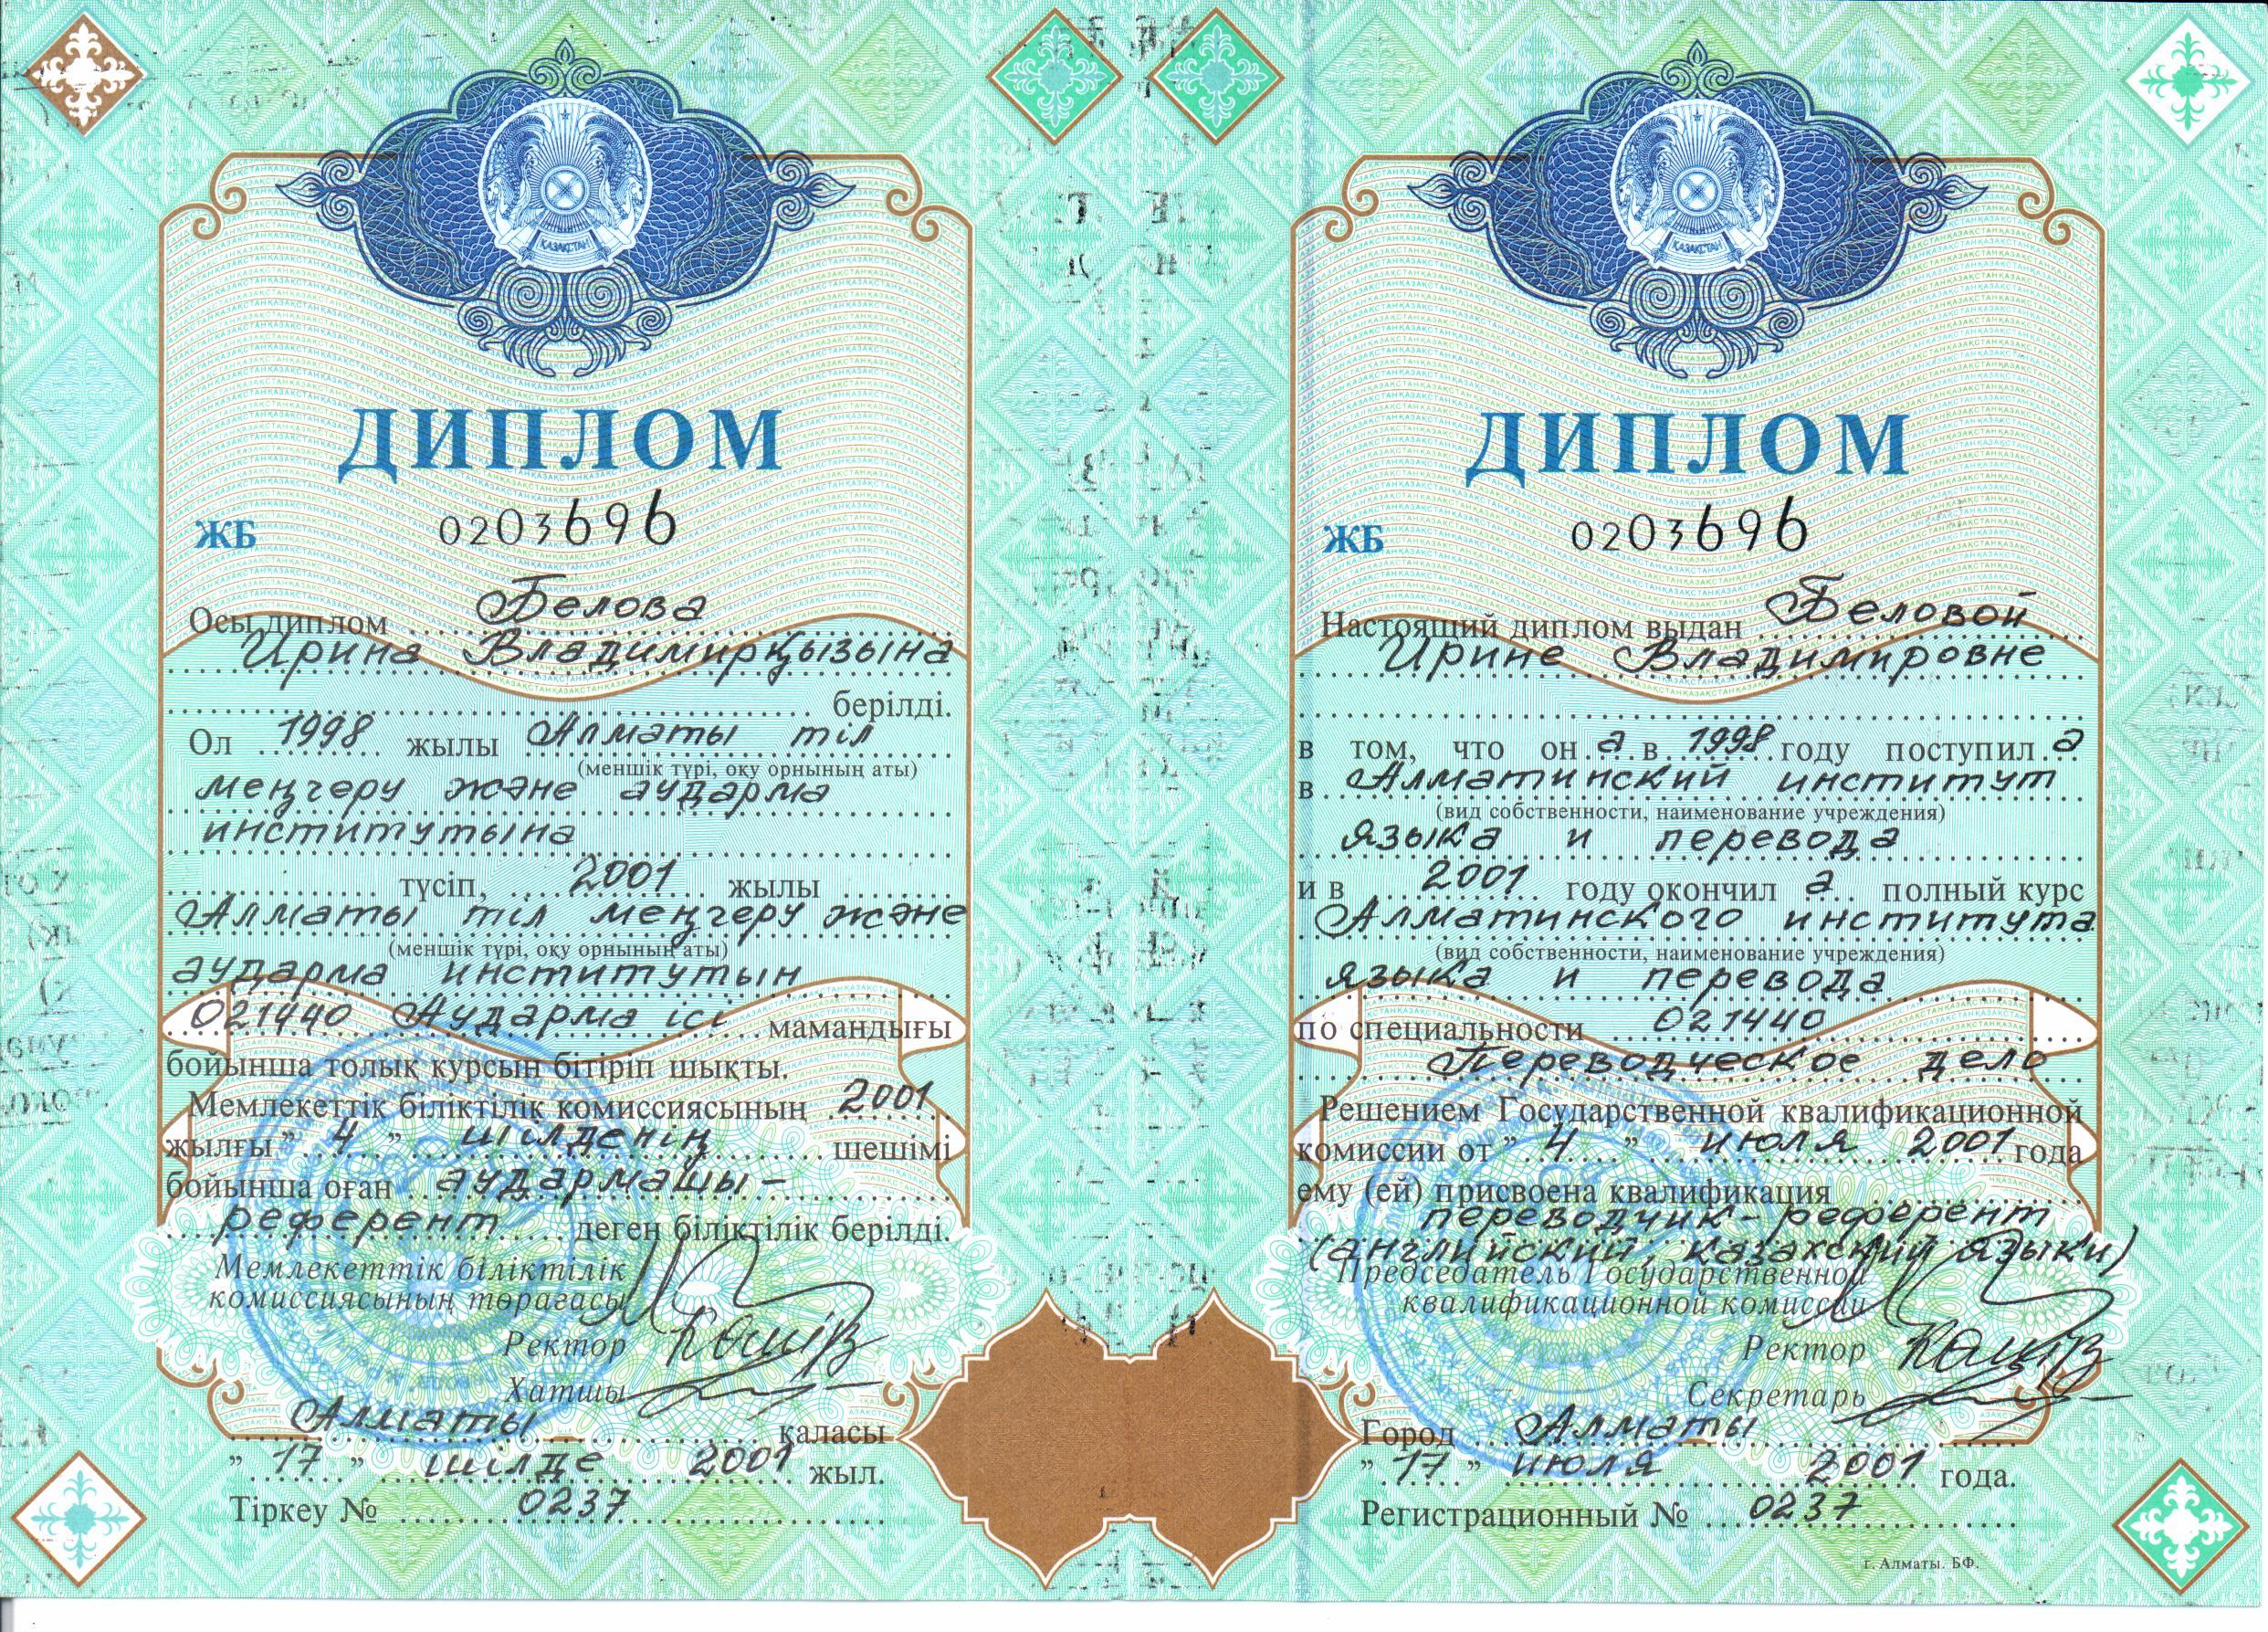 ҚАЗАҚСТАН
ДИПЛОМ
ЖБ 0203696
Осы диплом Белова
Ирина Владимирқызына
берілді.
Ол 1998 жылы Алматы тіл
(меншік түрі, оқу орнының аты)
меңгеру және аударма
институтына
түсіп, 2001 жылы
Алматы тіл меңгеру және
(меншік түрі, оқу орнының аты)
аударма институтын
021440 Аударма ісі мамандығы
бойынша толық курсын бітіріп шықты.
Мемлекеттік біліктілік комиссиясының 2001
жылғы " 4 " шілденің шешімі
бойынша оған аудармашы-
референт деген біліктілік берілді.
Мемлекеттік біліктілік
комиссиясының төрағасы
Ректор
Хатшы
Алматы қаласы
" 17 " шілде 2001 жыл.
Тіркеу № 0237
ҚАЗАҚСТАН
ДИПЛОМ
ЖБ 0203696
Настоящий диплом выдан Беловой
Ирине Владимировне
в том, что он а в 1998 году поступил а
в Алматинский институт
(вид собственности, наименование учреждения)
языка и перевода
и в 2001 году окончил а полный курс
Алматинского института
(вид собственности, наименование учреждения)
языка и перевода
по специальности 021440
Переводческое дело
Решением Государственной квалификационной
комиссии от " 4 " июля 2001 года
ему (ей) присвоена квалификация
переводчик-референт
(английский, казахский языки)
Председатель Государственной
квалификационной комиссии
Ректор
Секретарь
Город Алматы
" 17 " июля 2001 года.
Регистрационный № 0237
г. Алматы. БФ.